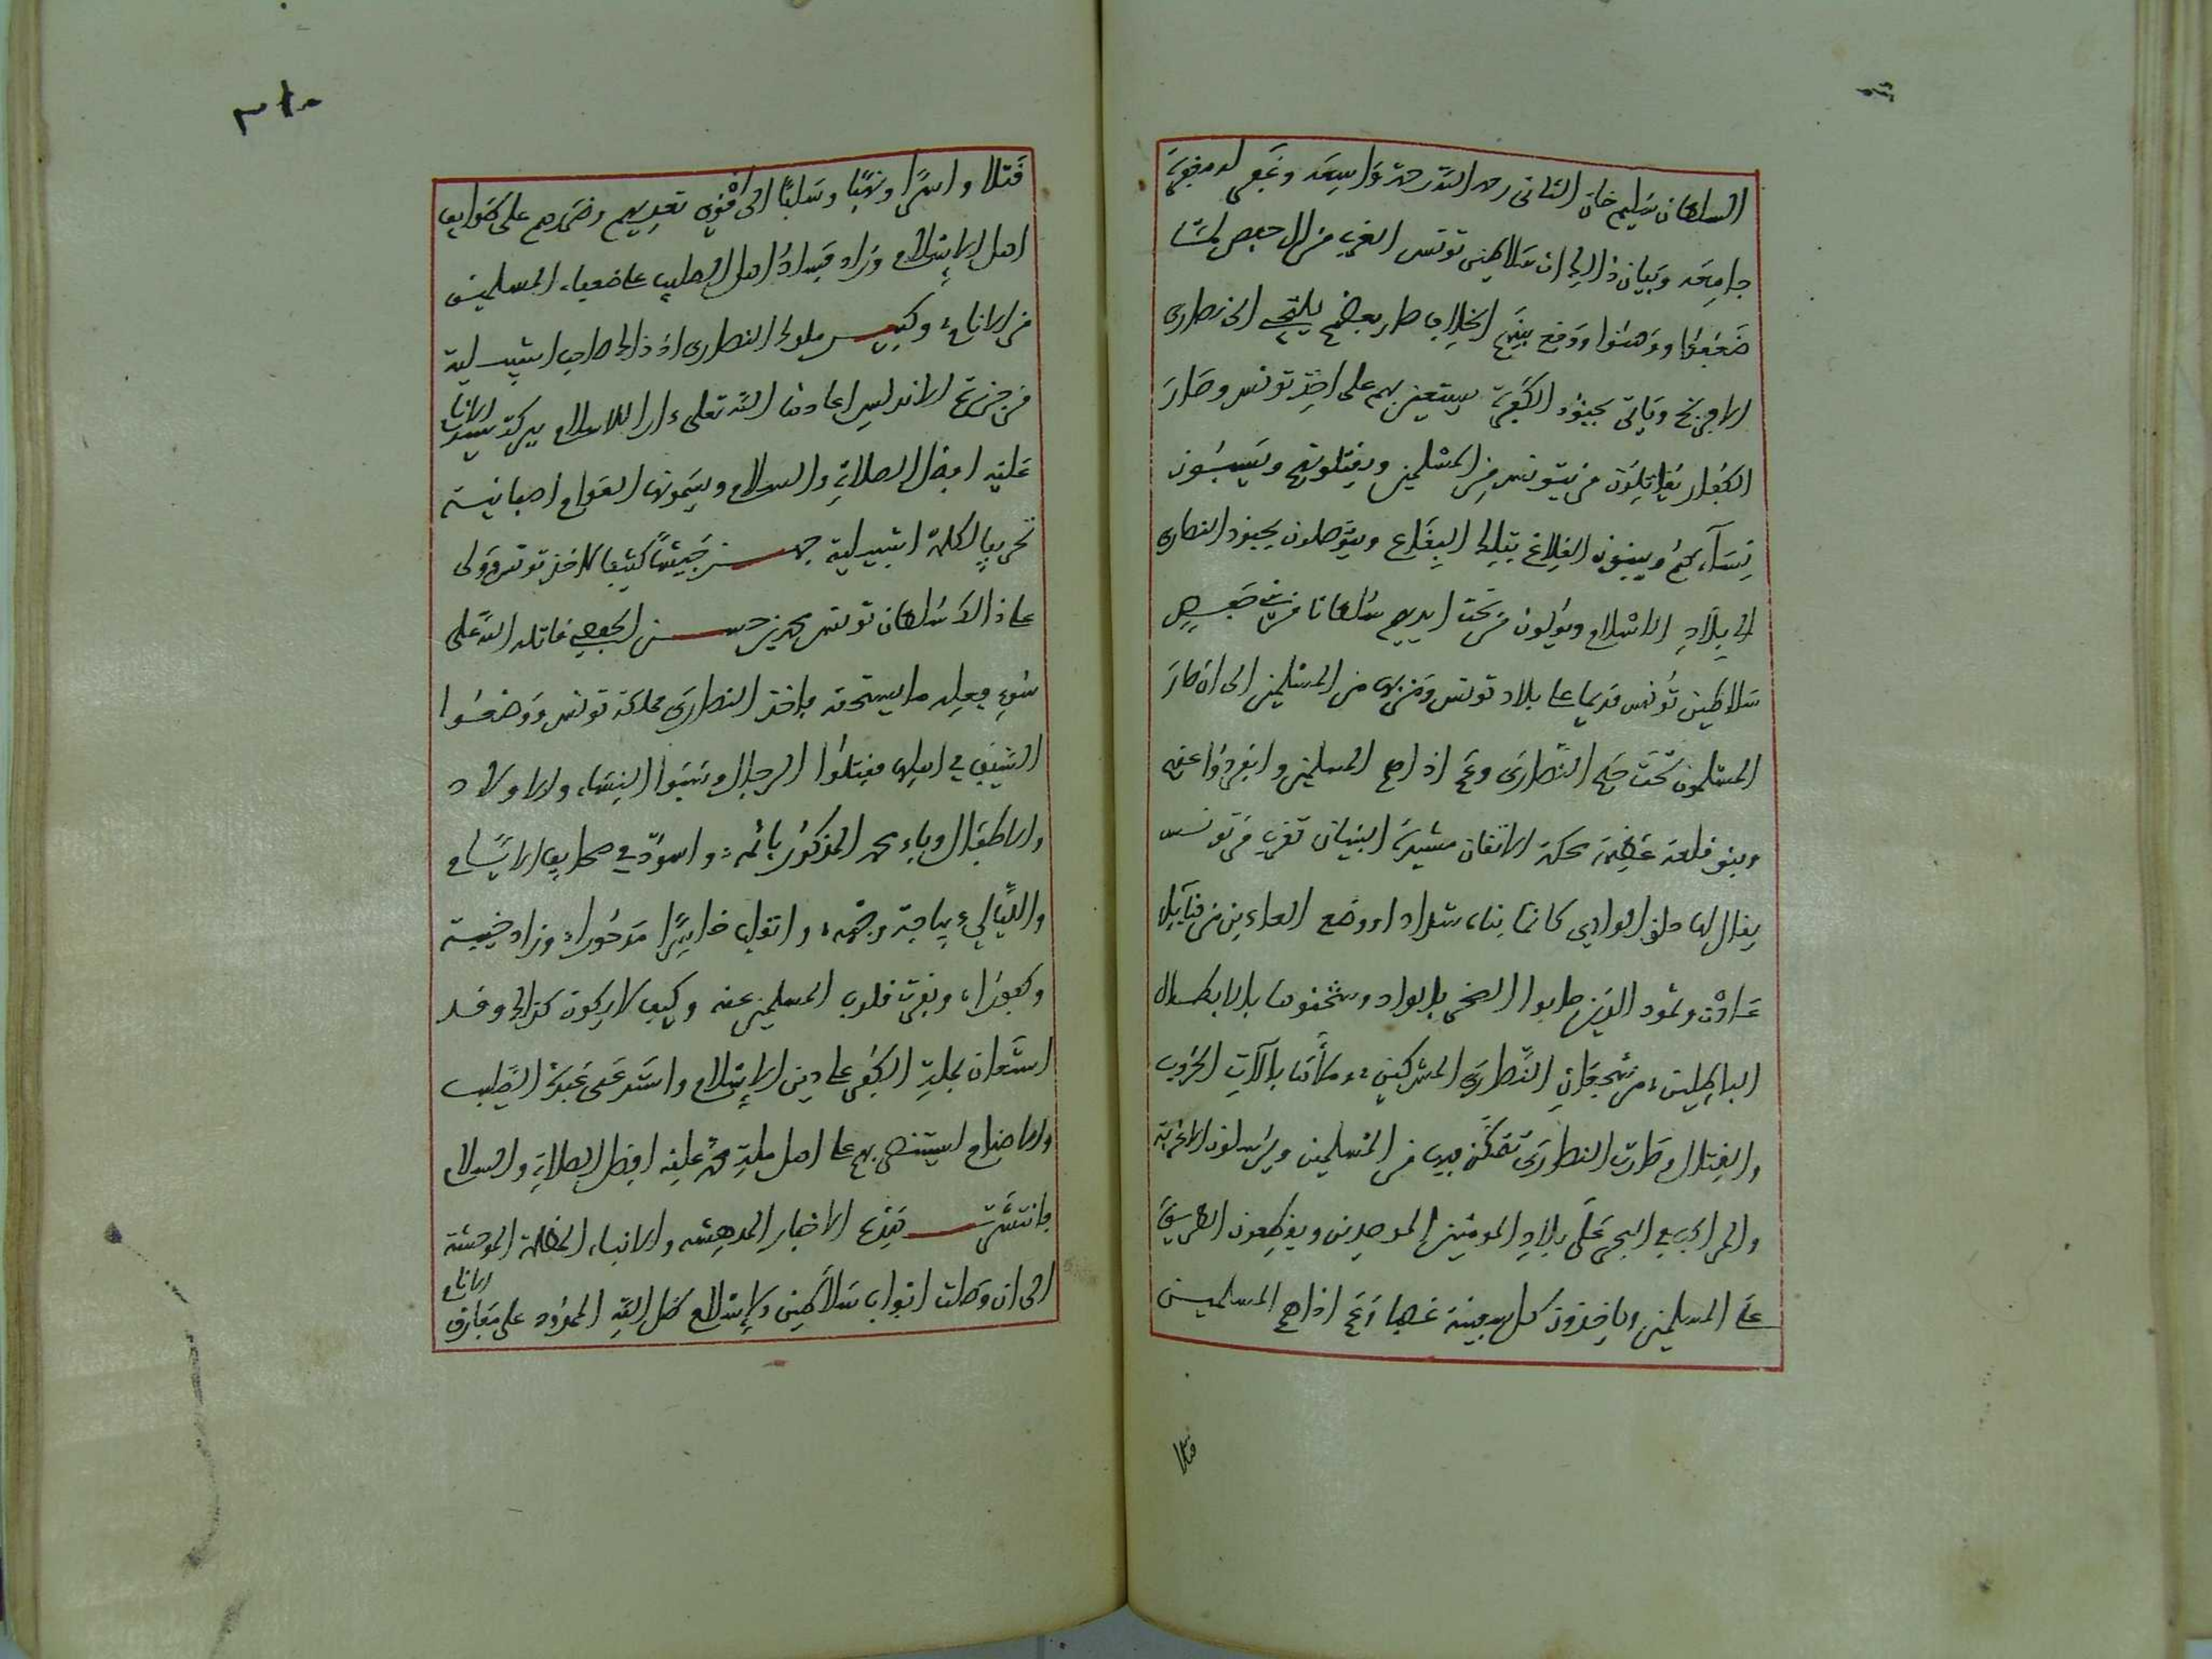 السلطان سليم خان الثاني رحمه الله رحمة واسعة وغفر له مغفرة
جامعة وبيان ذالك ان سلاطين تونس الغرب من ال حفص لمّا
ضَعُفوا ووَهنوا ووقع بينهم الخلاف صار بعضهم يلتجى الى نصارى
الافرنج وياتى بجنود الكفرة يستعين بهم على اخذ تونس وصار
الكفار يقاتلون من بتونس من المسلمين ويقتلونهم ويَسبُون
نساءهم ويبنون القلاع بتلك البقاع ويتوصلون بجنود النصارى
الى بلاد الاسلام ويولون من تحت ايديهم سلطانا من
سلاطين تونس قديما على بلاد تونس ومن بها من المسلمين الى ان صار
المسلمون تحت حكم النصارى وعم اذاهم المسلمين وانفردوا عنهم
وبنو قلعة عظيمة محكمة الاتقان مشيدة البنيان تقرب من تونس
يقال لها حلق الوادي كانها بناء شداد او وضع العاديين من قبائل
عاد وثمود الذين جابوا الصخر بالواد وشحنوها بالابطال
الباطلين من شجعان النصارى المشركين وملأها بآلات الحروب
والقتال وصارت النصارى تتمكن فيها من المسلمين ويرسلون الاغربة
والمراكب في البحر على بلاد المومنين الموحدين ويقطعون الطريق
على المسلمين وياخذون كل سفينة غصبا وعم اذاهم المسلمين
قتلا
٣١٠
قتلا واسرا ونهبا وسلبا الى اقوى تعديهم وضررهم على طوايف
اهل الاسلام وزاد فساد اهل الصليب على ضعفاء المسلمين
من الانام وكبير ملوك النصارى اذ ذاك صاحب اشبيلية
من جزيرة الاندلس اعادها الله تعلى دارا للاسلام ببركة سيد الانام
عليه افضل الصلاة والسلام ويسمونها العوام اصبانية
تحريفا لكلمة اشبيلية جهز جيشا كثيفا لاخذ تونس ودله
على ذالك سلطان تونس محمد بن حسن الحفصى قاتله الله على
سوء فعله ما يستحقه فاخذ النصارى مملكة تونس ووضعوا
السيف في اهلها فقتلوا الرجال وسبوا النساء والاولاد
والاطفال وباء محمد المذكور باثمه واسودّ في صحايف الايام
والليالي بياجة وجهه وانقلب خاسرا مدحورا وزاد خيبة
وكفورا ونفرت قلوب المسلمين عنه وكيف لا يكون كذالك وقد
استعان بملة الكفر على دين الاسلام واستدعى عبدة الصليب
والاصنام ليستنصر بهم على اهل ملة محمد عليه افضل الصلاة والسلام
فانتشرت هذه الاخبار المدهشة والانباء المظلمة الموحشة
الى ان وصلت ابواب سلاطين الاسلام ظل الله الممدود على مفارق الانام